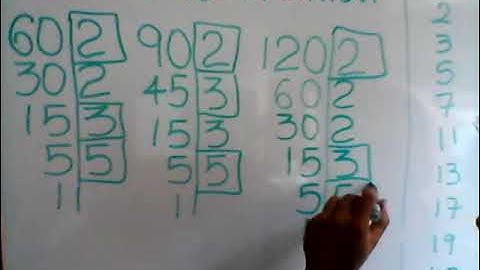 60 2 90 2 120 2 2
30 2 45 3 60 2 3
15 3 15 3 30 2 5
5 5 5 5 15 3 7
1 1 5 11
13
17
19